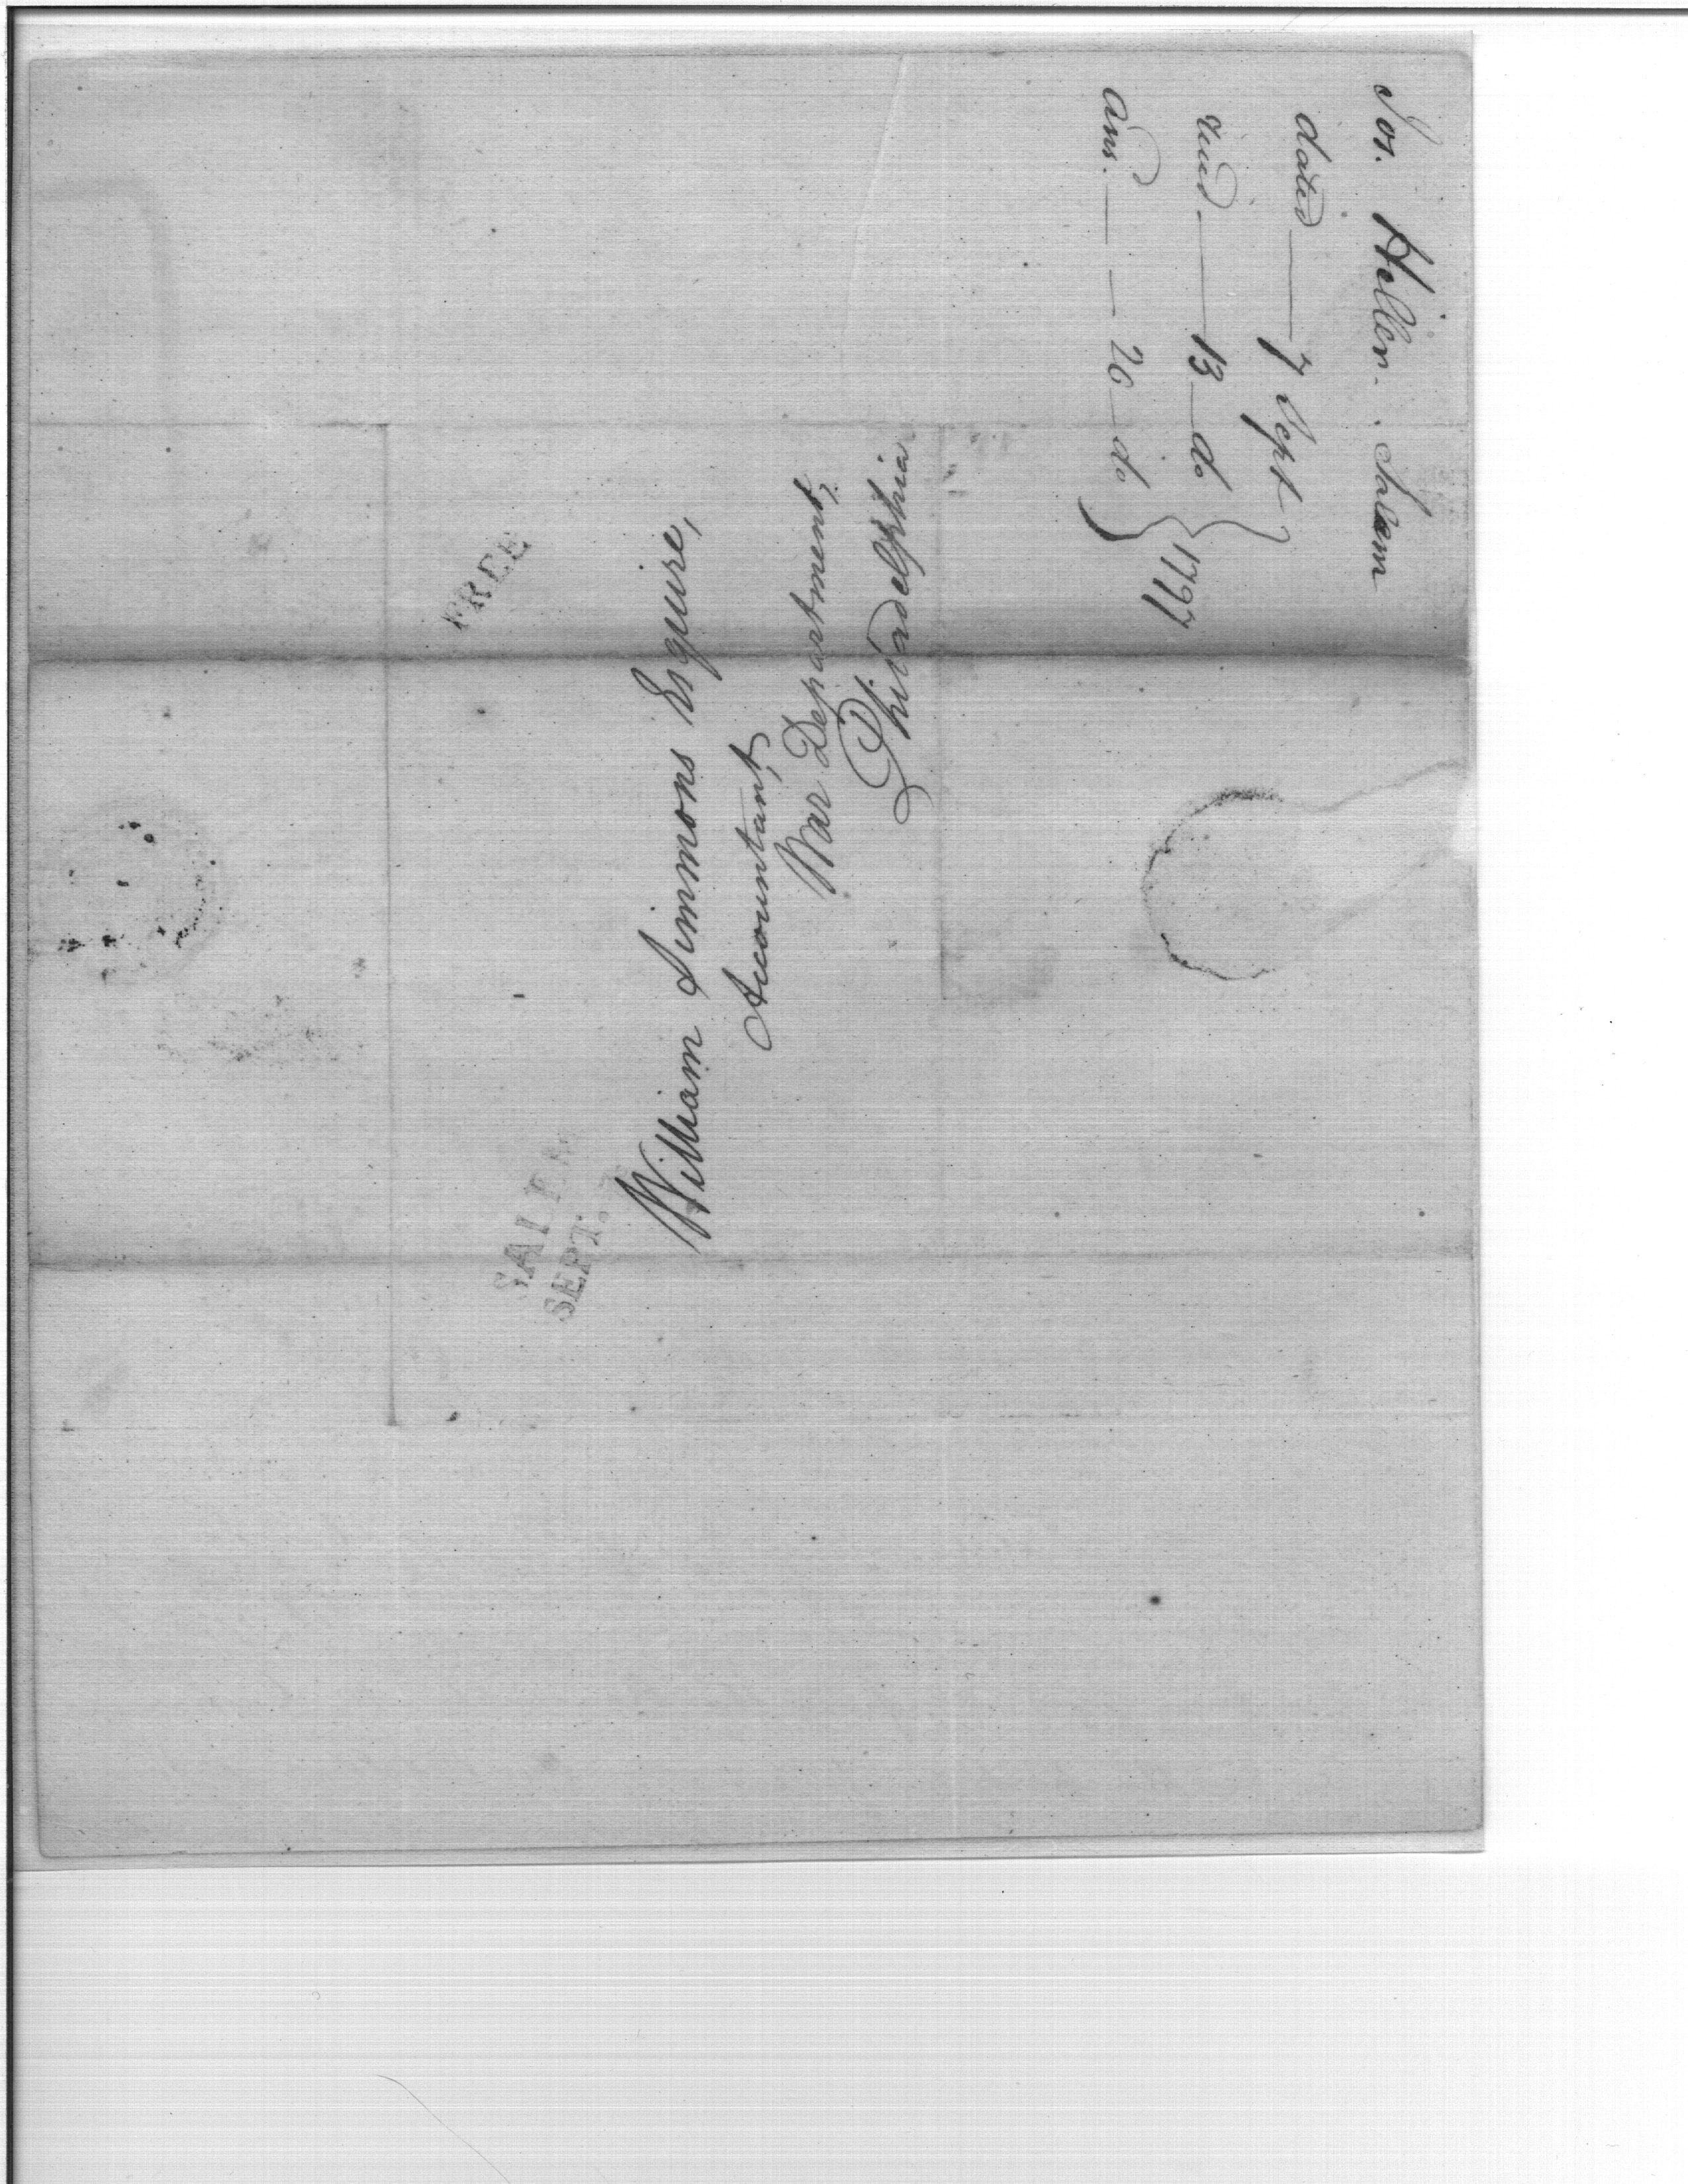 Jos. Hiller. Salem
dated — 7 Sept
recd — 13 do
ans. — 20 do
1797
FREE
SALEM
SEPT.
William Simmons Esquire,
Accountant,
War Department,
Philadelphia